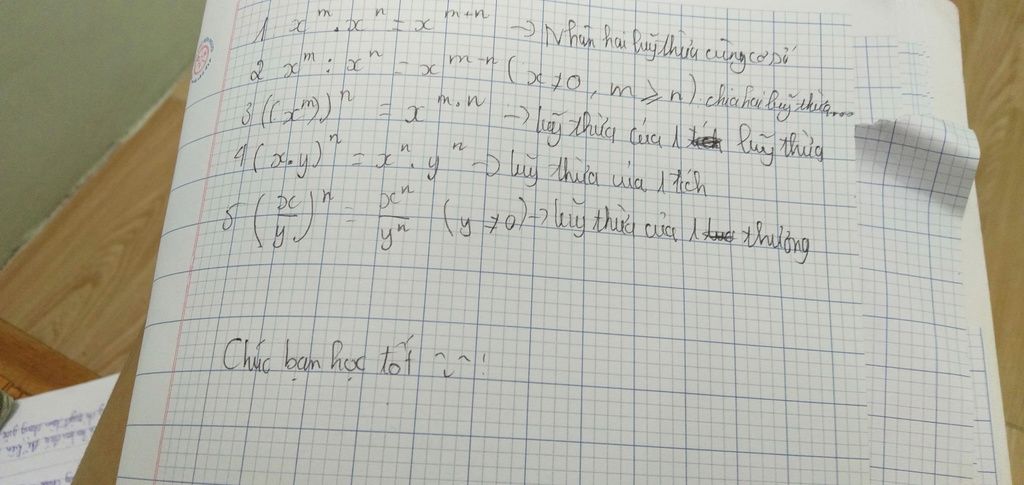 1 x^m . x^n = x^{m+n} → Nhân hai luỹ thừa cùng cơ số
2 x^m : x^n = x^{m-n} (x ≠ 0, m ⩾ n). chia hai luỹ thừa...
3 ((x^m))^n = x^{m.n} → luỹ thừa của 1 luỹ thừa
4 (x.y)^n = x^n . y^n → luỹ thừa của 1 tích
5 (x/y)^n = x^n/y^n (y ≠ 0) → luỹ thừa của 1 thương
Chúc bạn học tốt ~~!